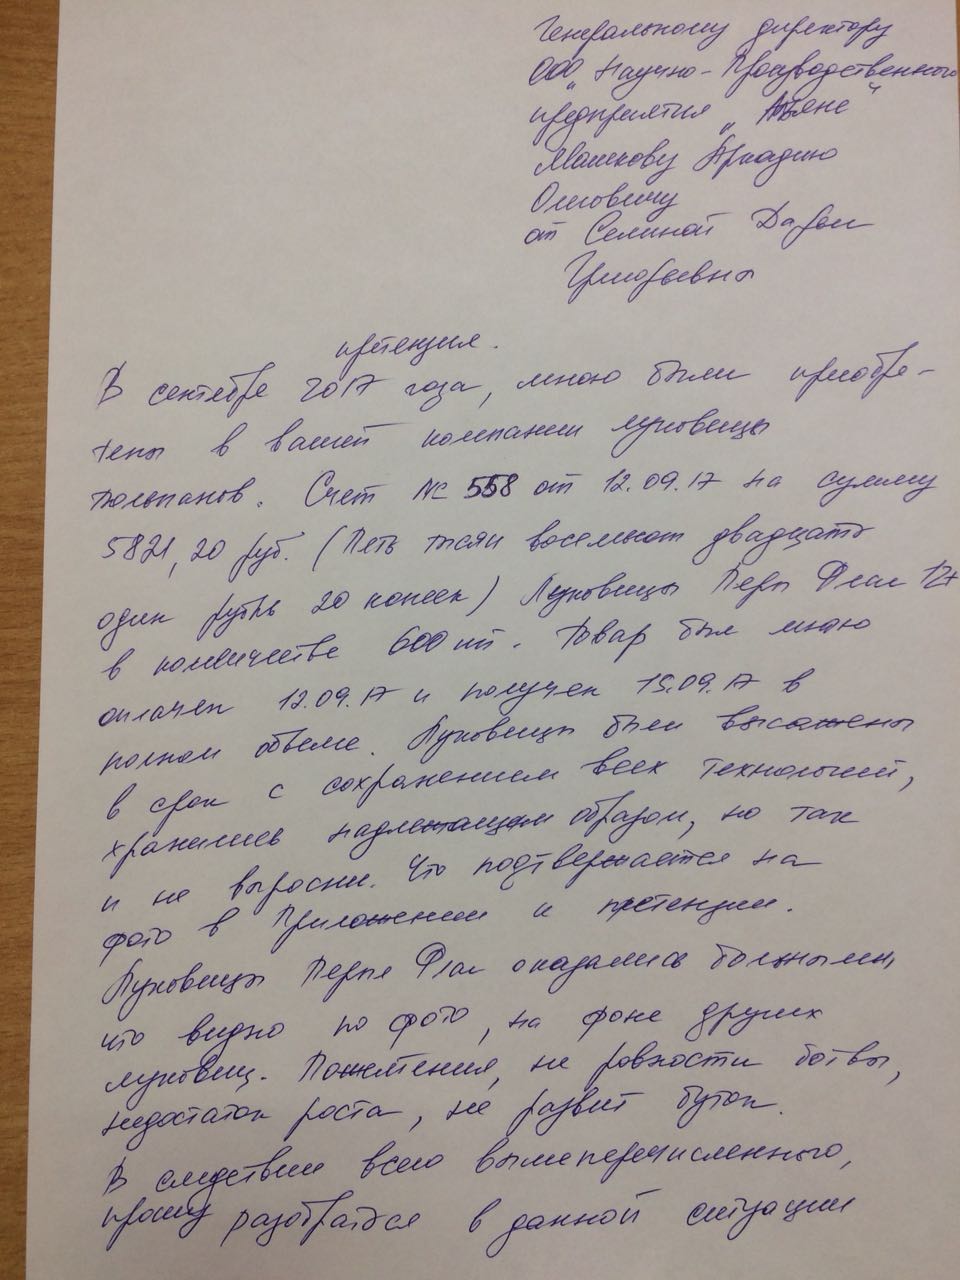 Генеральному директору
ООО „Научно-Производственного
предприятия „ "
Машкову Аркадию
Олеговичу
от Селиной Дарьи
Григорьевны
претензия.
В сентябре 2017 года, мною были приобре-
тены в вашей компании луковицы
тюльпанов. Счет № 558 от 12.09.17 на сумму
5821,20 руб. (Пять тысяч восемьсот двадцать
один рубль 20 копеек) Луковицы Перпл Флаг 12+
в количестве 600 шт. Товар был мною
оплачен 12.09.17 и получен 15.09.17 в
полном объеме. Луковицы были высажены
в срок с сохранением всех технологий,
хранились надлежащем образом, но так
и не выросли. Что подтверждается на
фото в Приложении к претензии.
Луковицы Перпл Флаг оказались больными,
что видно по фото, на фоне других
луковиц. Пожелтения, не ровности ботвы,
недостаток роста, не развит бутон.
В следствии всего вышеперечисленного,
прошу разобраться в данной ситуации